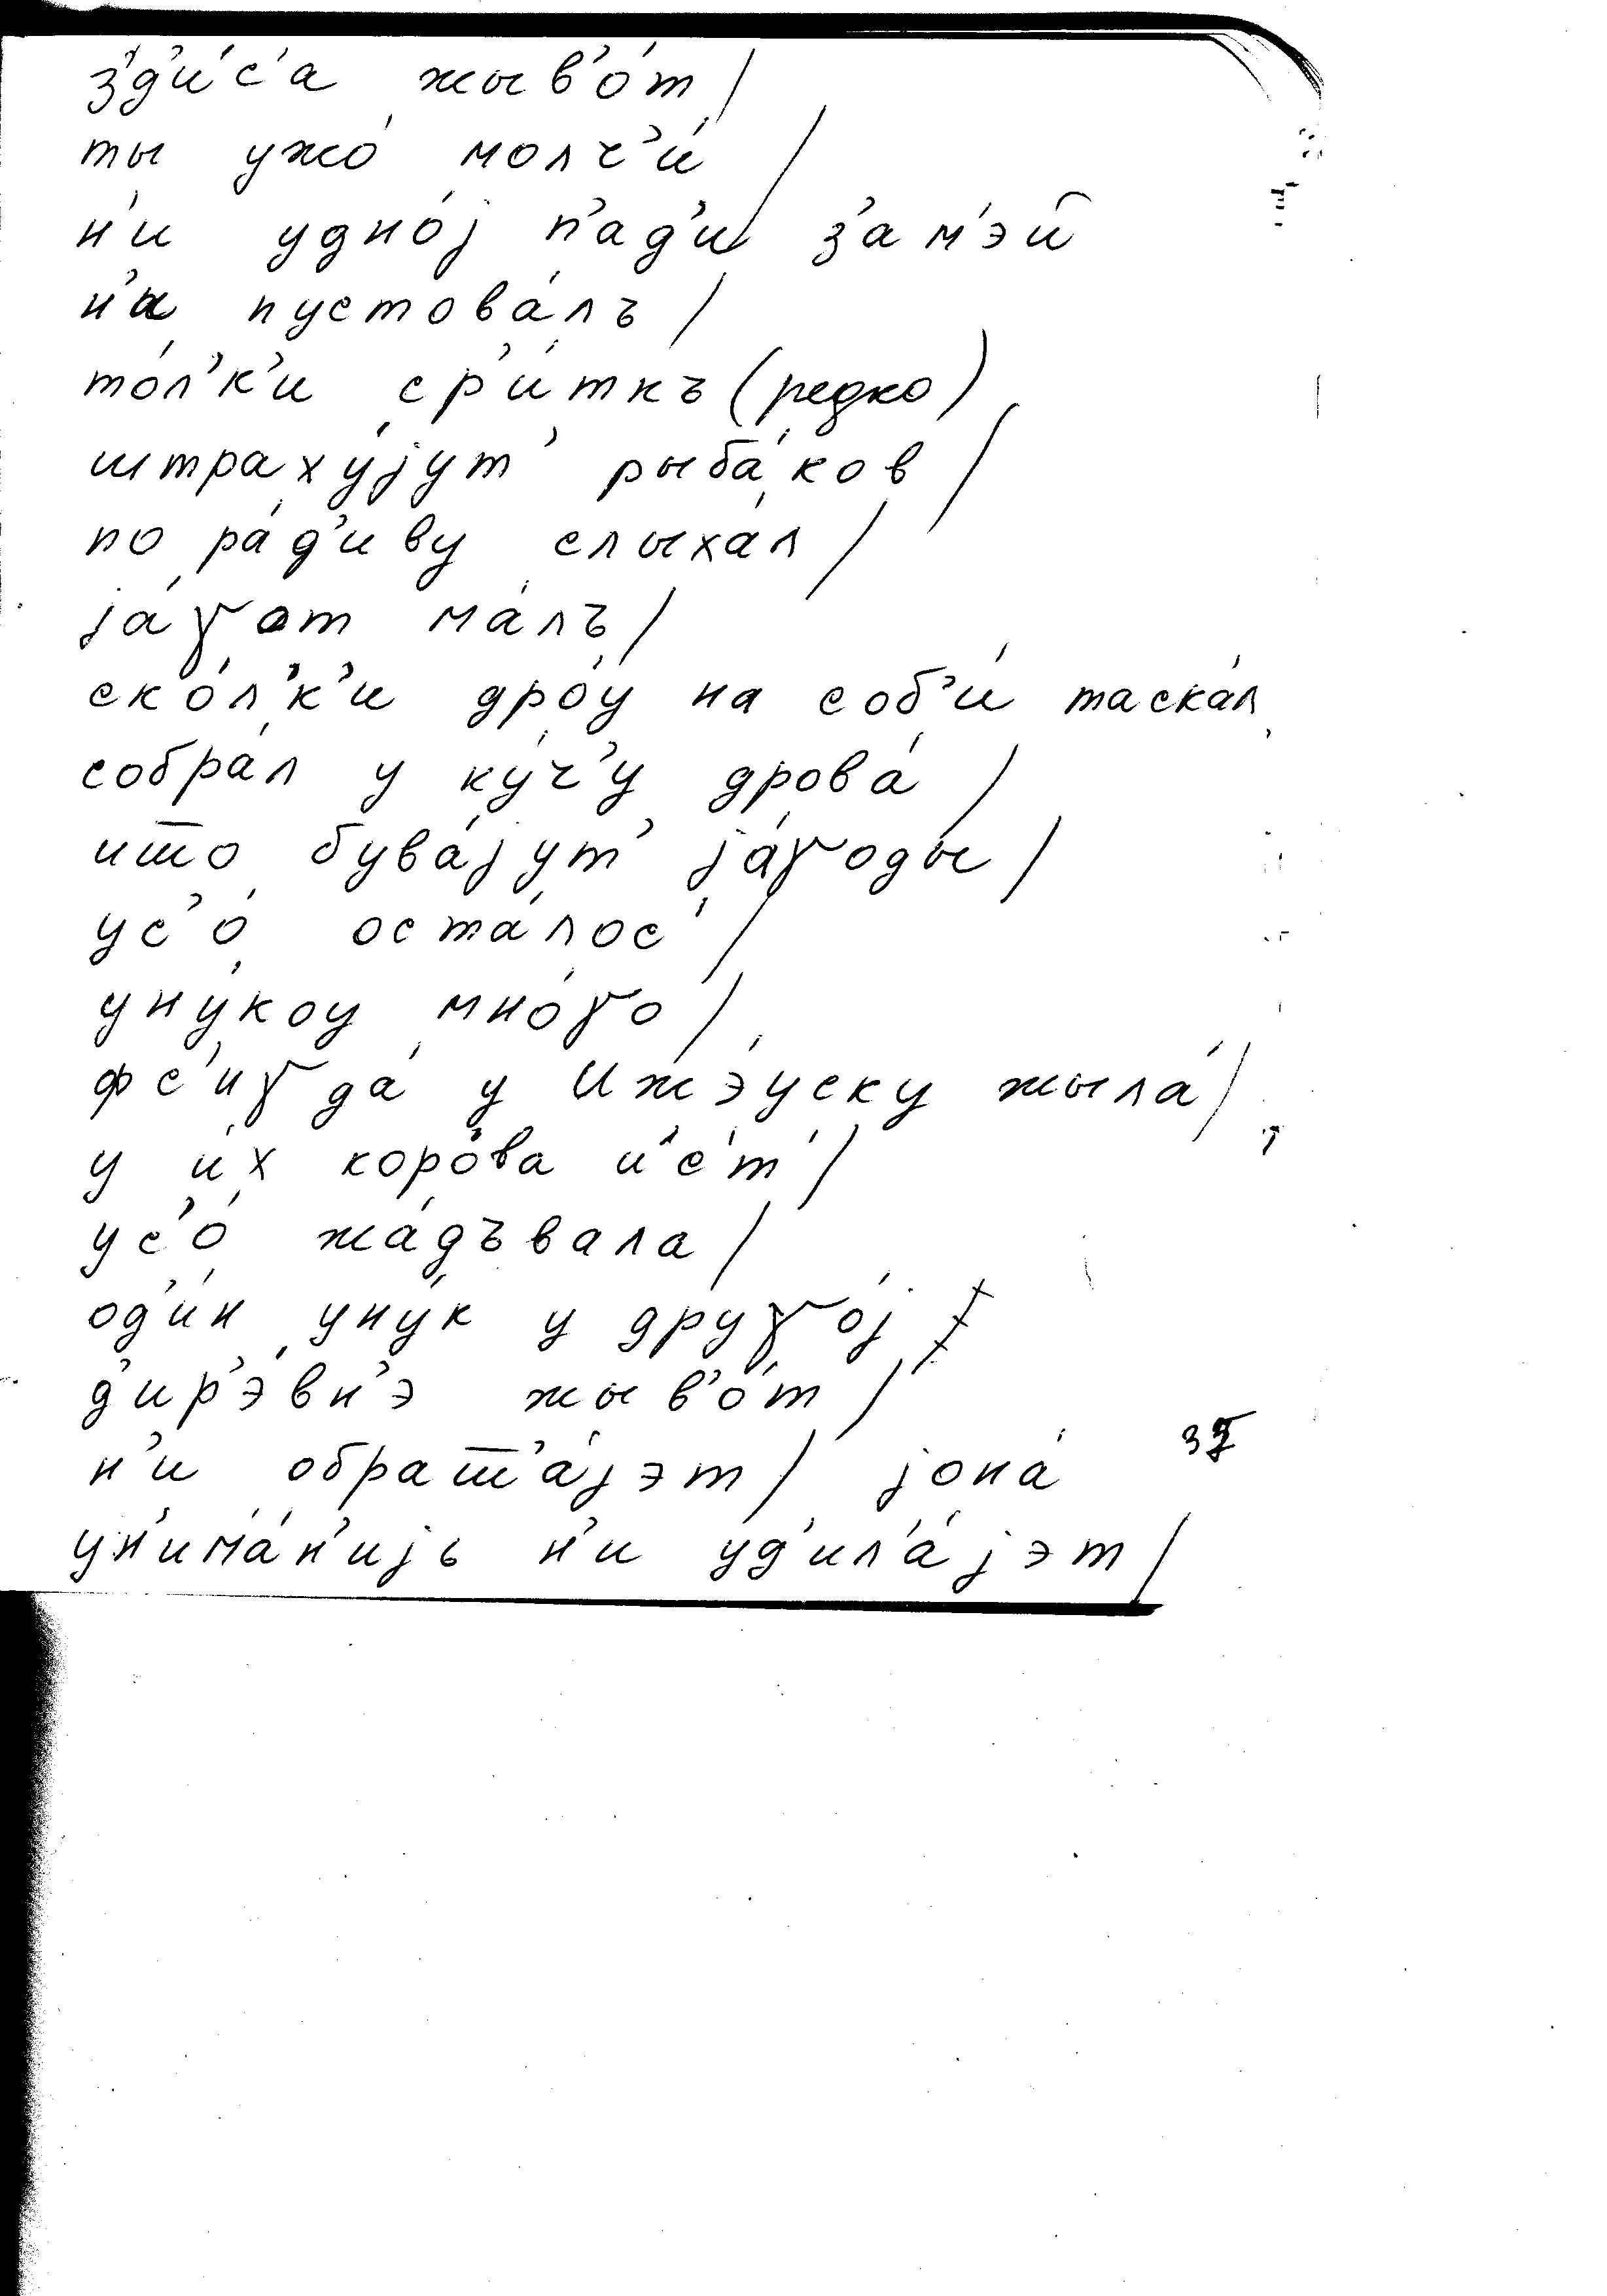 з'д'и́с'а жыв'о́т /
ты ужо́ молч'и́ /
н'и удно́j п'ад'и́ з'ам'э́й
н'а пустова́лъ /
то́л'к'и ср'и́ткъ (редко)
штраху́jут' рыба́ков /
по ра́д'иву слыха́л /
jа́γот ма́лъ /
ско́л'к'и дро́у на соб'и́ таска́л
собра́л у ку́ч'у дрова́ /
што бува́jут' jа́γоды /
ус'о́ оста́лос' /
уну́коу мно́γо /
фс'иγда́ у Ижэ́уску жыла́ /
у и́х коро́ва и́с'т' /
ус'о́ жа́дъвала /
од'и́н уну́к у друγо́j
д'ир'э́вн'э жыв'о́т /
н'и обраш'а́jэт / jона́
ун'има́н'иjь н'и уд'ил'а́jэт /